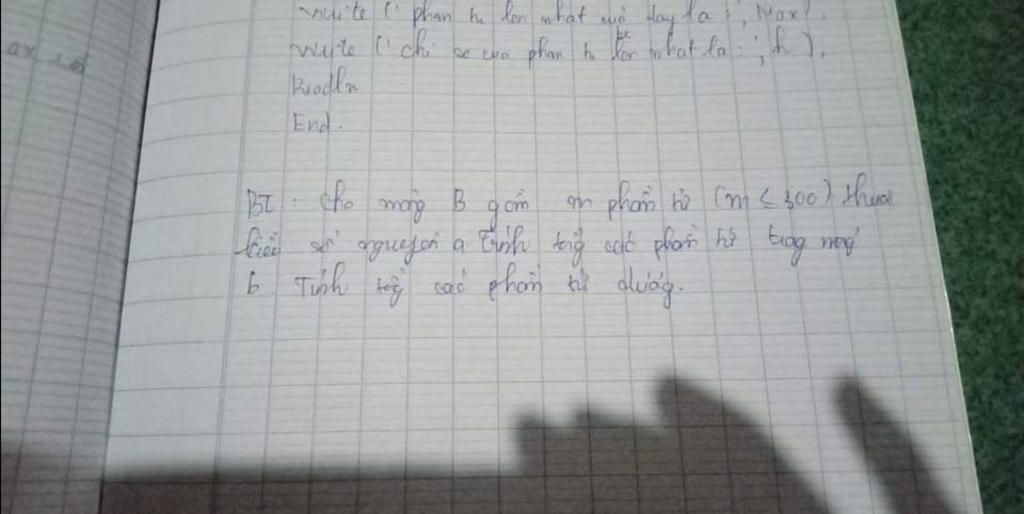 write (' phan tu lon nhat cua day la : ', Max).
write (' chi so cua phan tu lon nhat la : ', k ).
Readln
End.
BT : Cho mảng B gồm m phần tử (m ≤ 300) thuộc
kiểu số nguyên a Tính tổng các phần tử trong mảng
b. Tính tổng các phần tử dương.